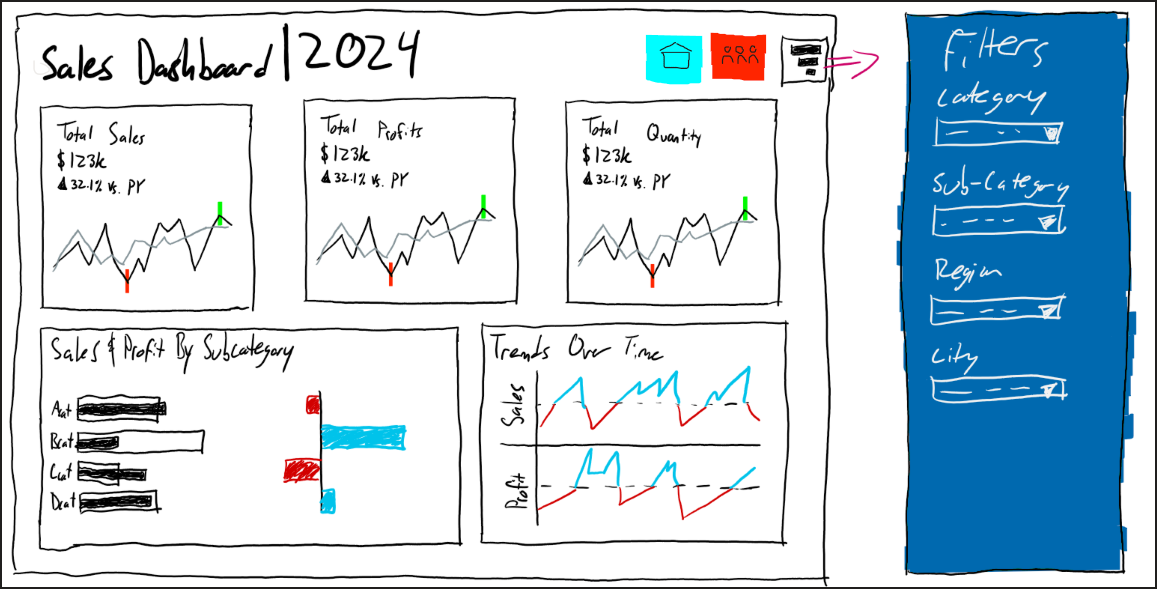 Sales Dashboard | 2024
Total Sales
$123k
▲32.1% vs. PY
Total Profits
$123k
▲32.1% vs. PY
Total Quantity
$123k
▲32.1% vs. PY
Sales & Profit By Subcategory
Acat
Bcat
Ccat
Dcat
Trends Over Time
Sales
Profit
Filters
Category
Sub-Category
Region
City